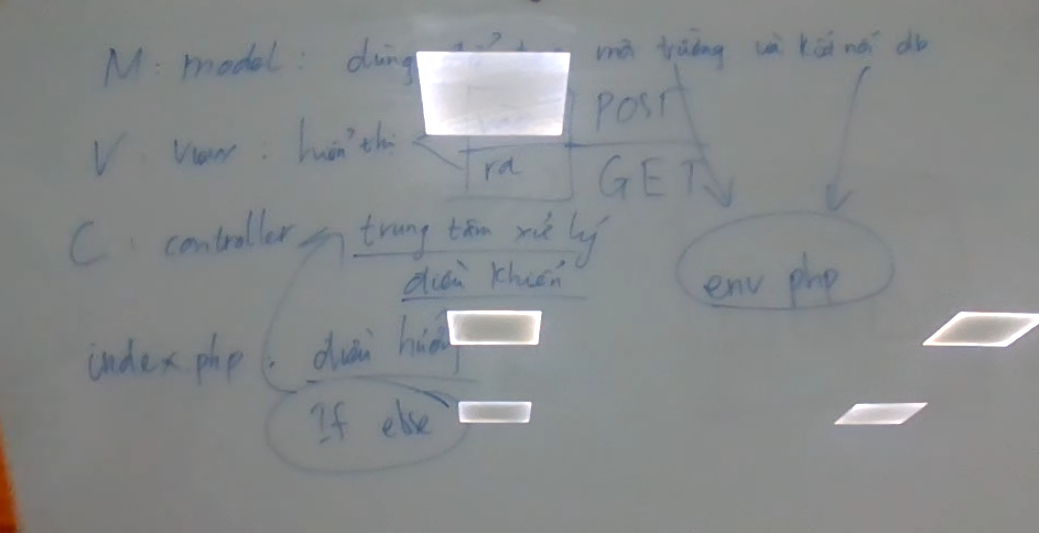 M: model: dùng để tạo môi trường và kết nối db
V: view: hiển thị
POST
ra
GET
C: controller
trung tâm xử lý
điều khiển
env php
index php: điều hướng
If else